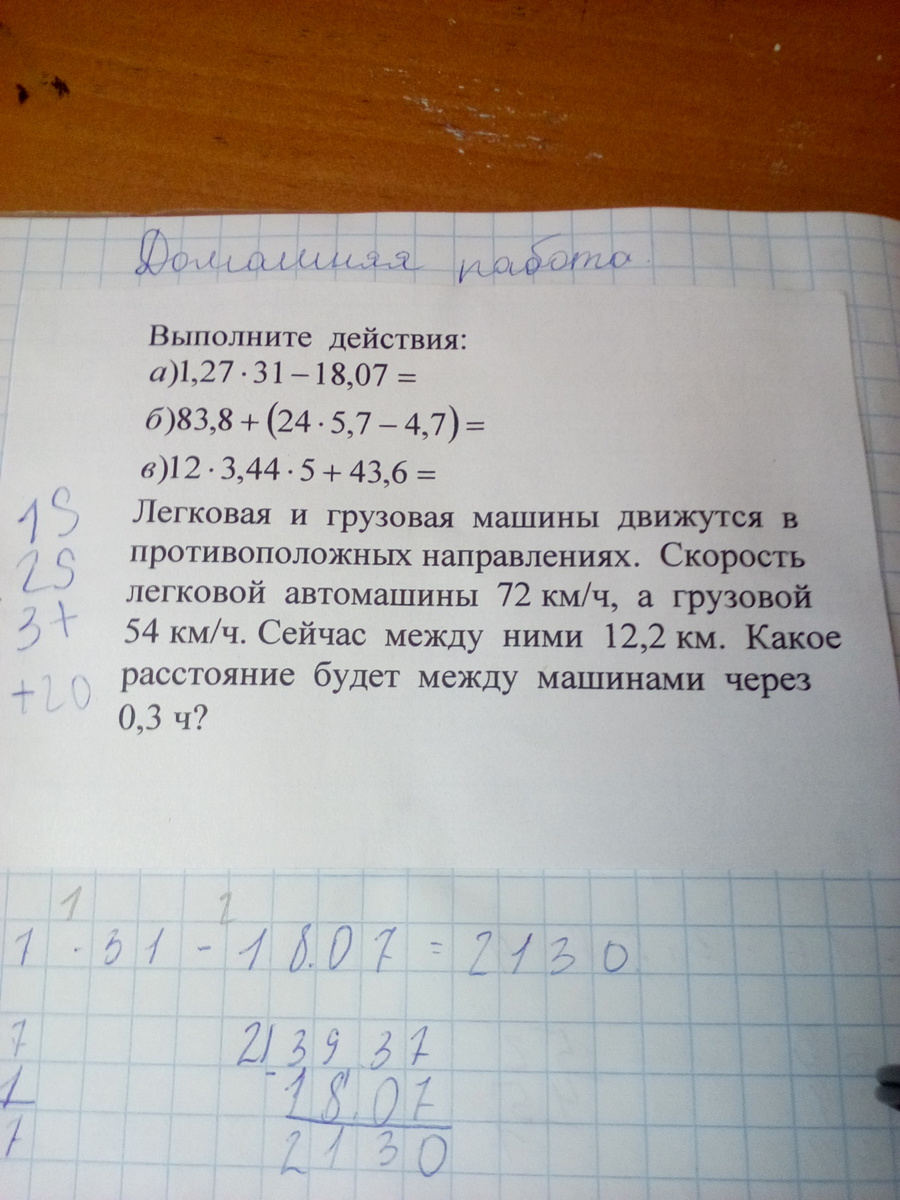 Домашняя работа.
Выполните действия:
а)1,27·31–18,07 =
б)83,8 + (24·5,7 – 4,7) =
в)12·3,44·5 + 43,6 =
Легковая и грузовая машины движутся в
противоположных направлениях. Скорость
легковой автомашины 72 км/ч, а грузовой
54 км/ч. Сейчас между ними 12,2 км. Какое
расстояние будет между машинами через
0,3 ч?
1S
2S
3+
+20
1 2
7 · 31 - 18.07 = 2130
7 2) 3937
1 - 18.07
7 2130